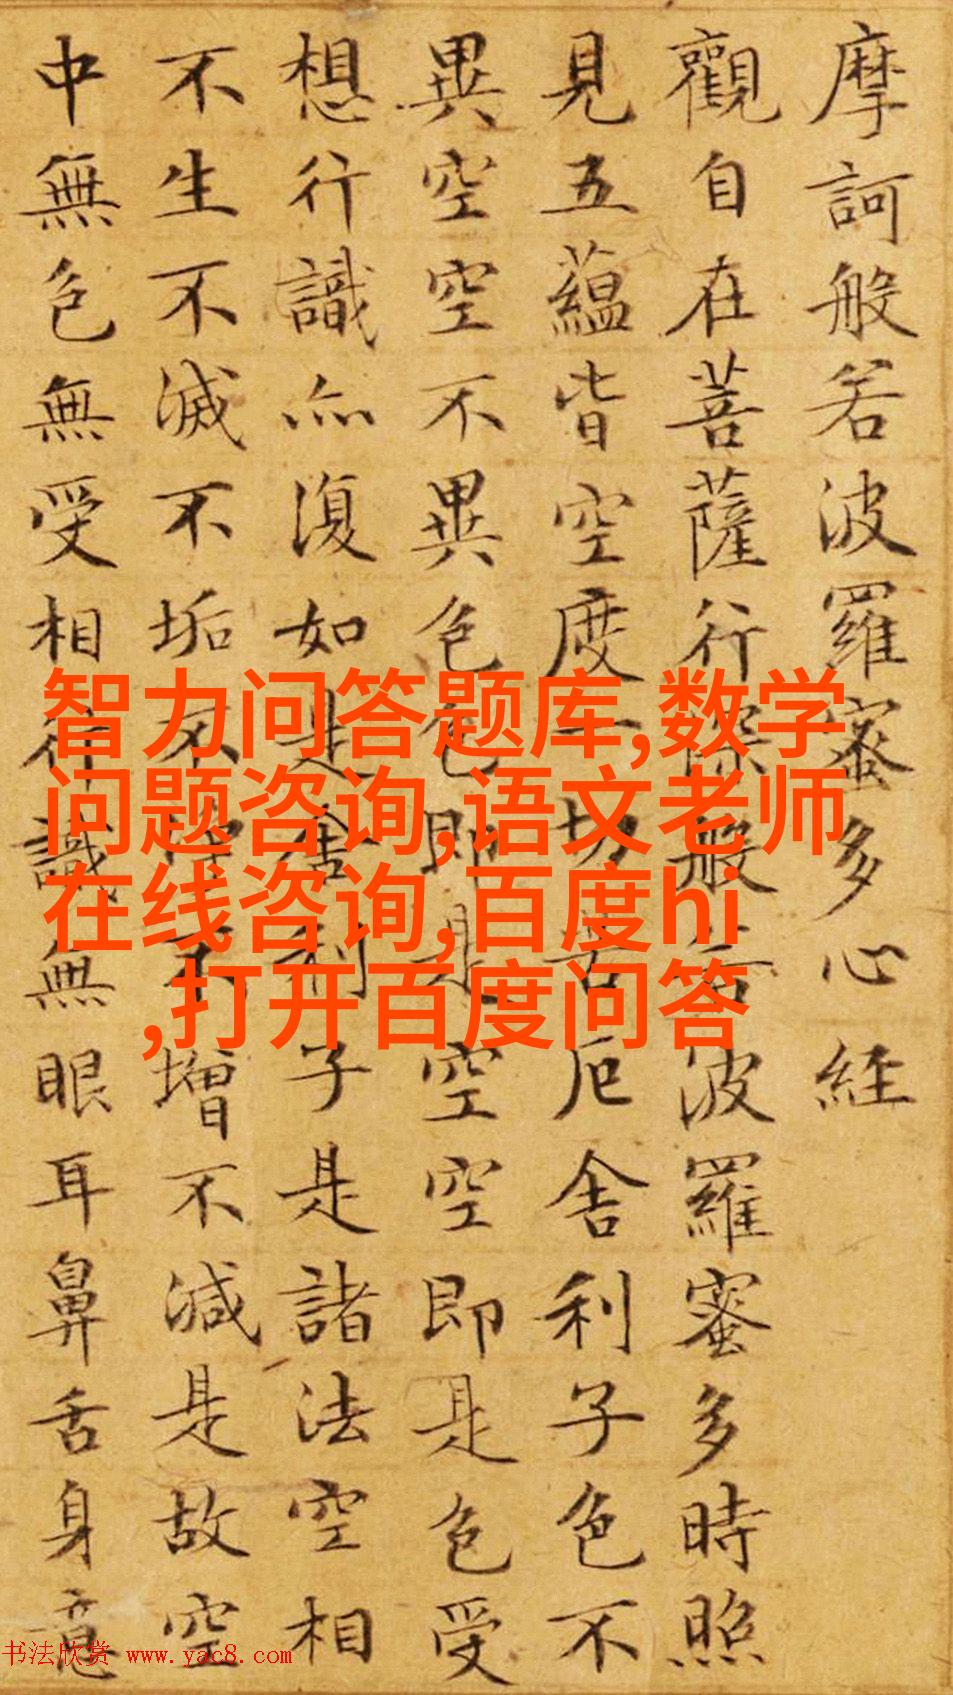 摩訶般若波羅蜜多心經
觀自在菩薩行深般若波羅蜜多時照
見五蘊皆空度一切苦厄舍利子色不
異空空不異色色即是空空即是色受
想行識亦復如是舍利子是諸法空相
不生不滅不垢不淨不增不減是故空
中無色無受相行識無眼耳鼻舌身意
智力问答题库,数学
问题咨询,语文老师
在线咨询,百度hi
,打开百度问答
书法欣赏 www.yac8.com